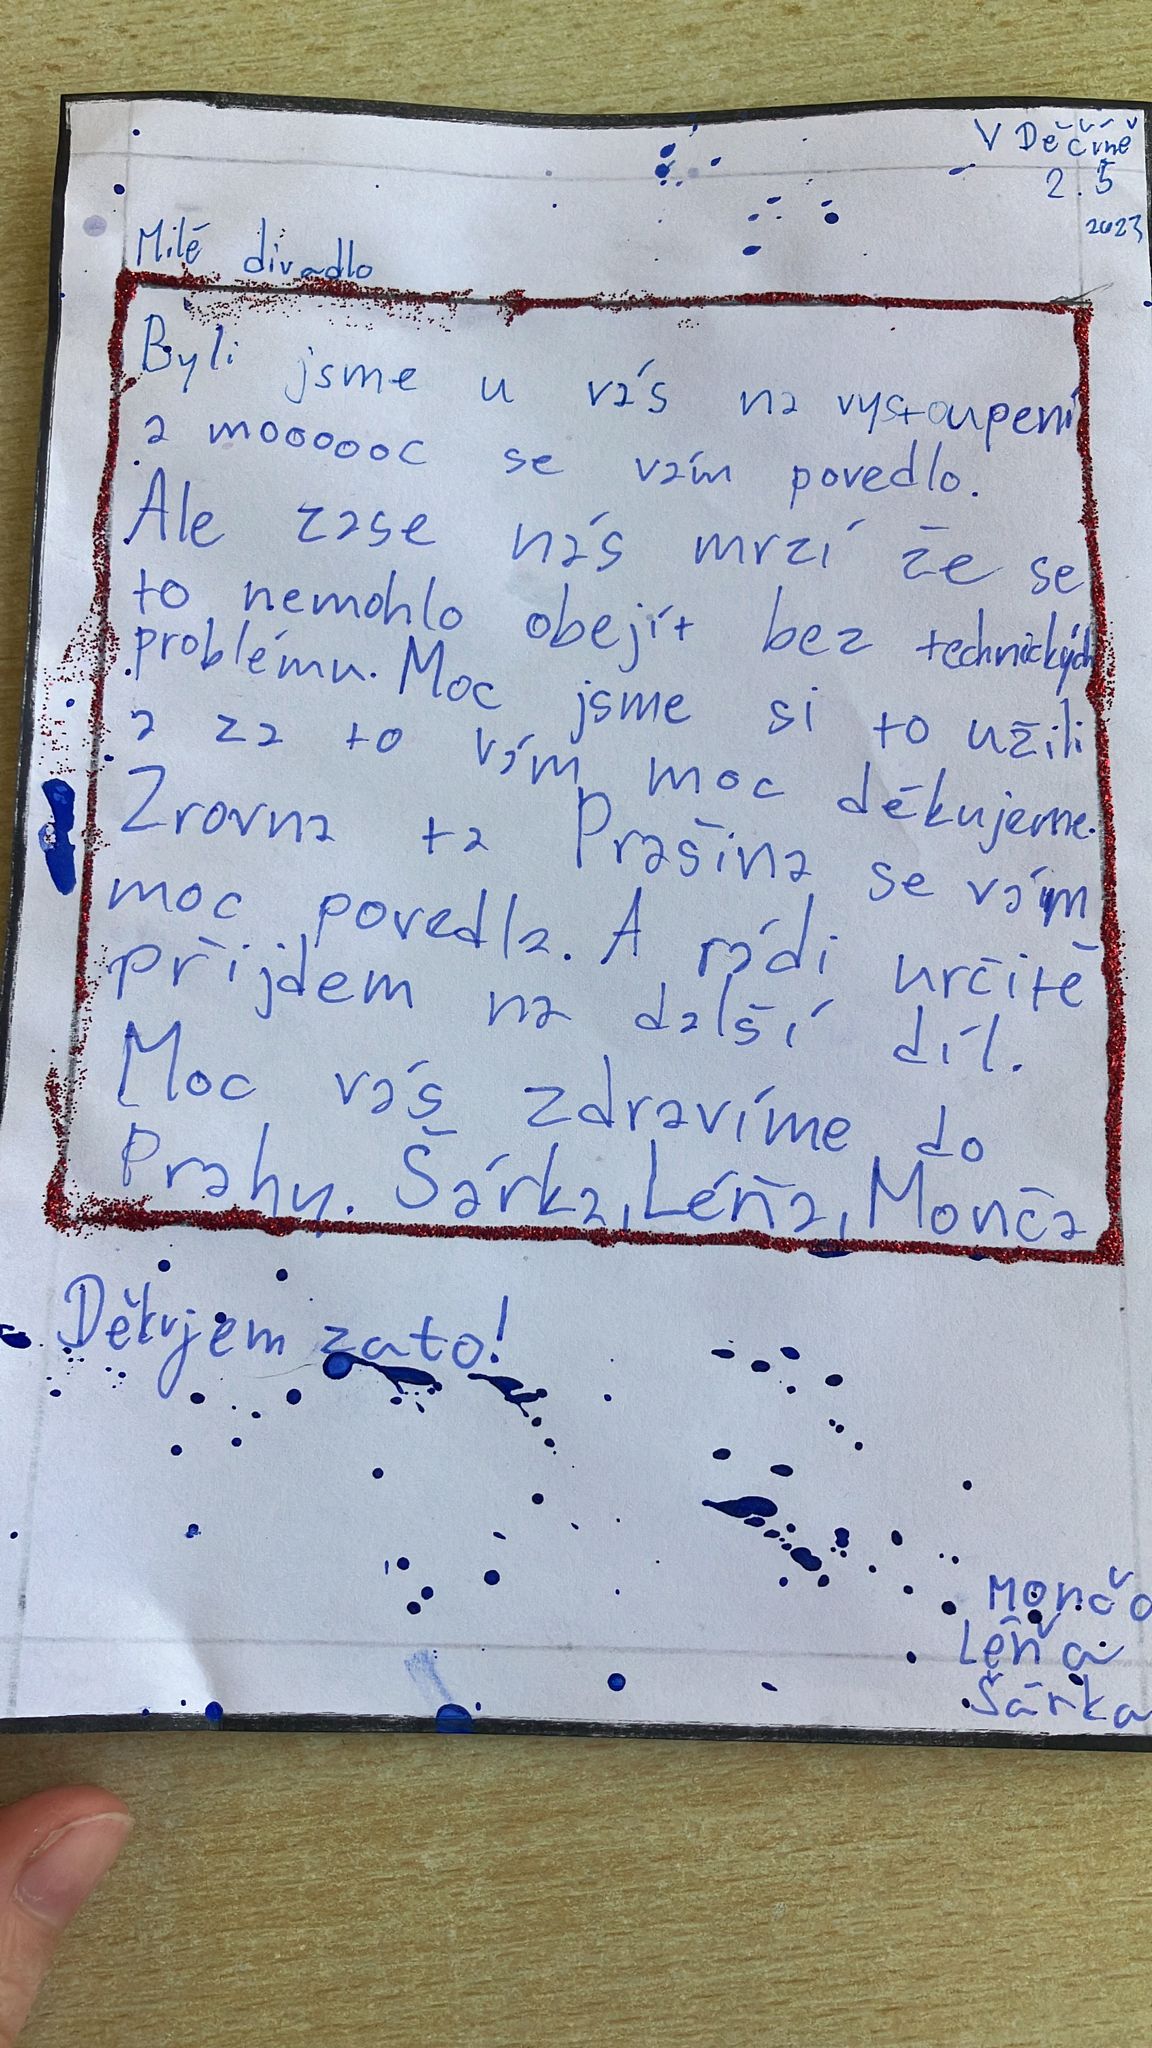 V Děčíně
2.5
2023
Milé divadlo
Byli jsme u vás na vystoupení
a moooooc se vám povedlo.
Ale zase nás mrzí že se
to nemohlo obejít bez technických
problému. Moc jsme si to užili
a za to vám moc děkujeme.
Zrovna ta Prašina se vám
moc povedla. A rádi určitě
přijdem na další díl.
Moc vás zdravíme do
Prahy. Šárka, Léňa, Monča
Děkujem zato!
Monča
Léňa
Šárka